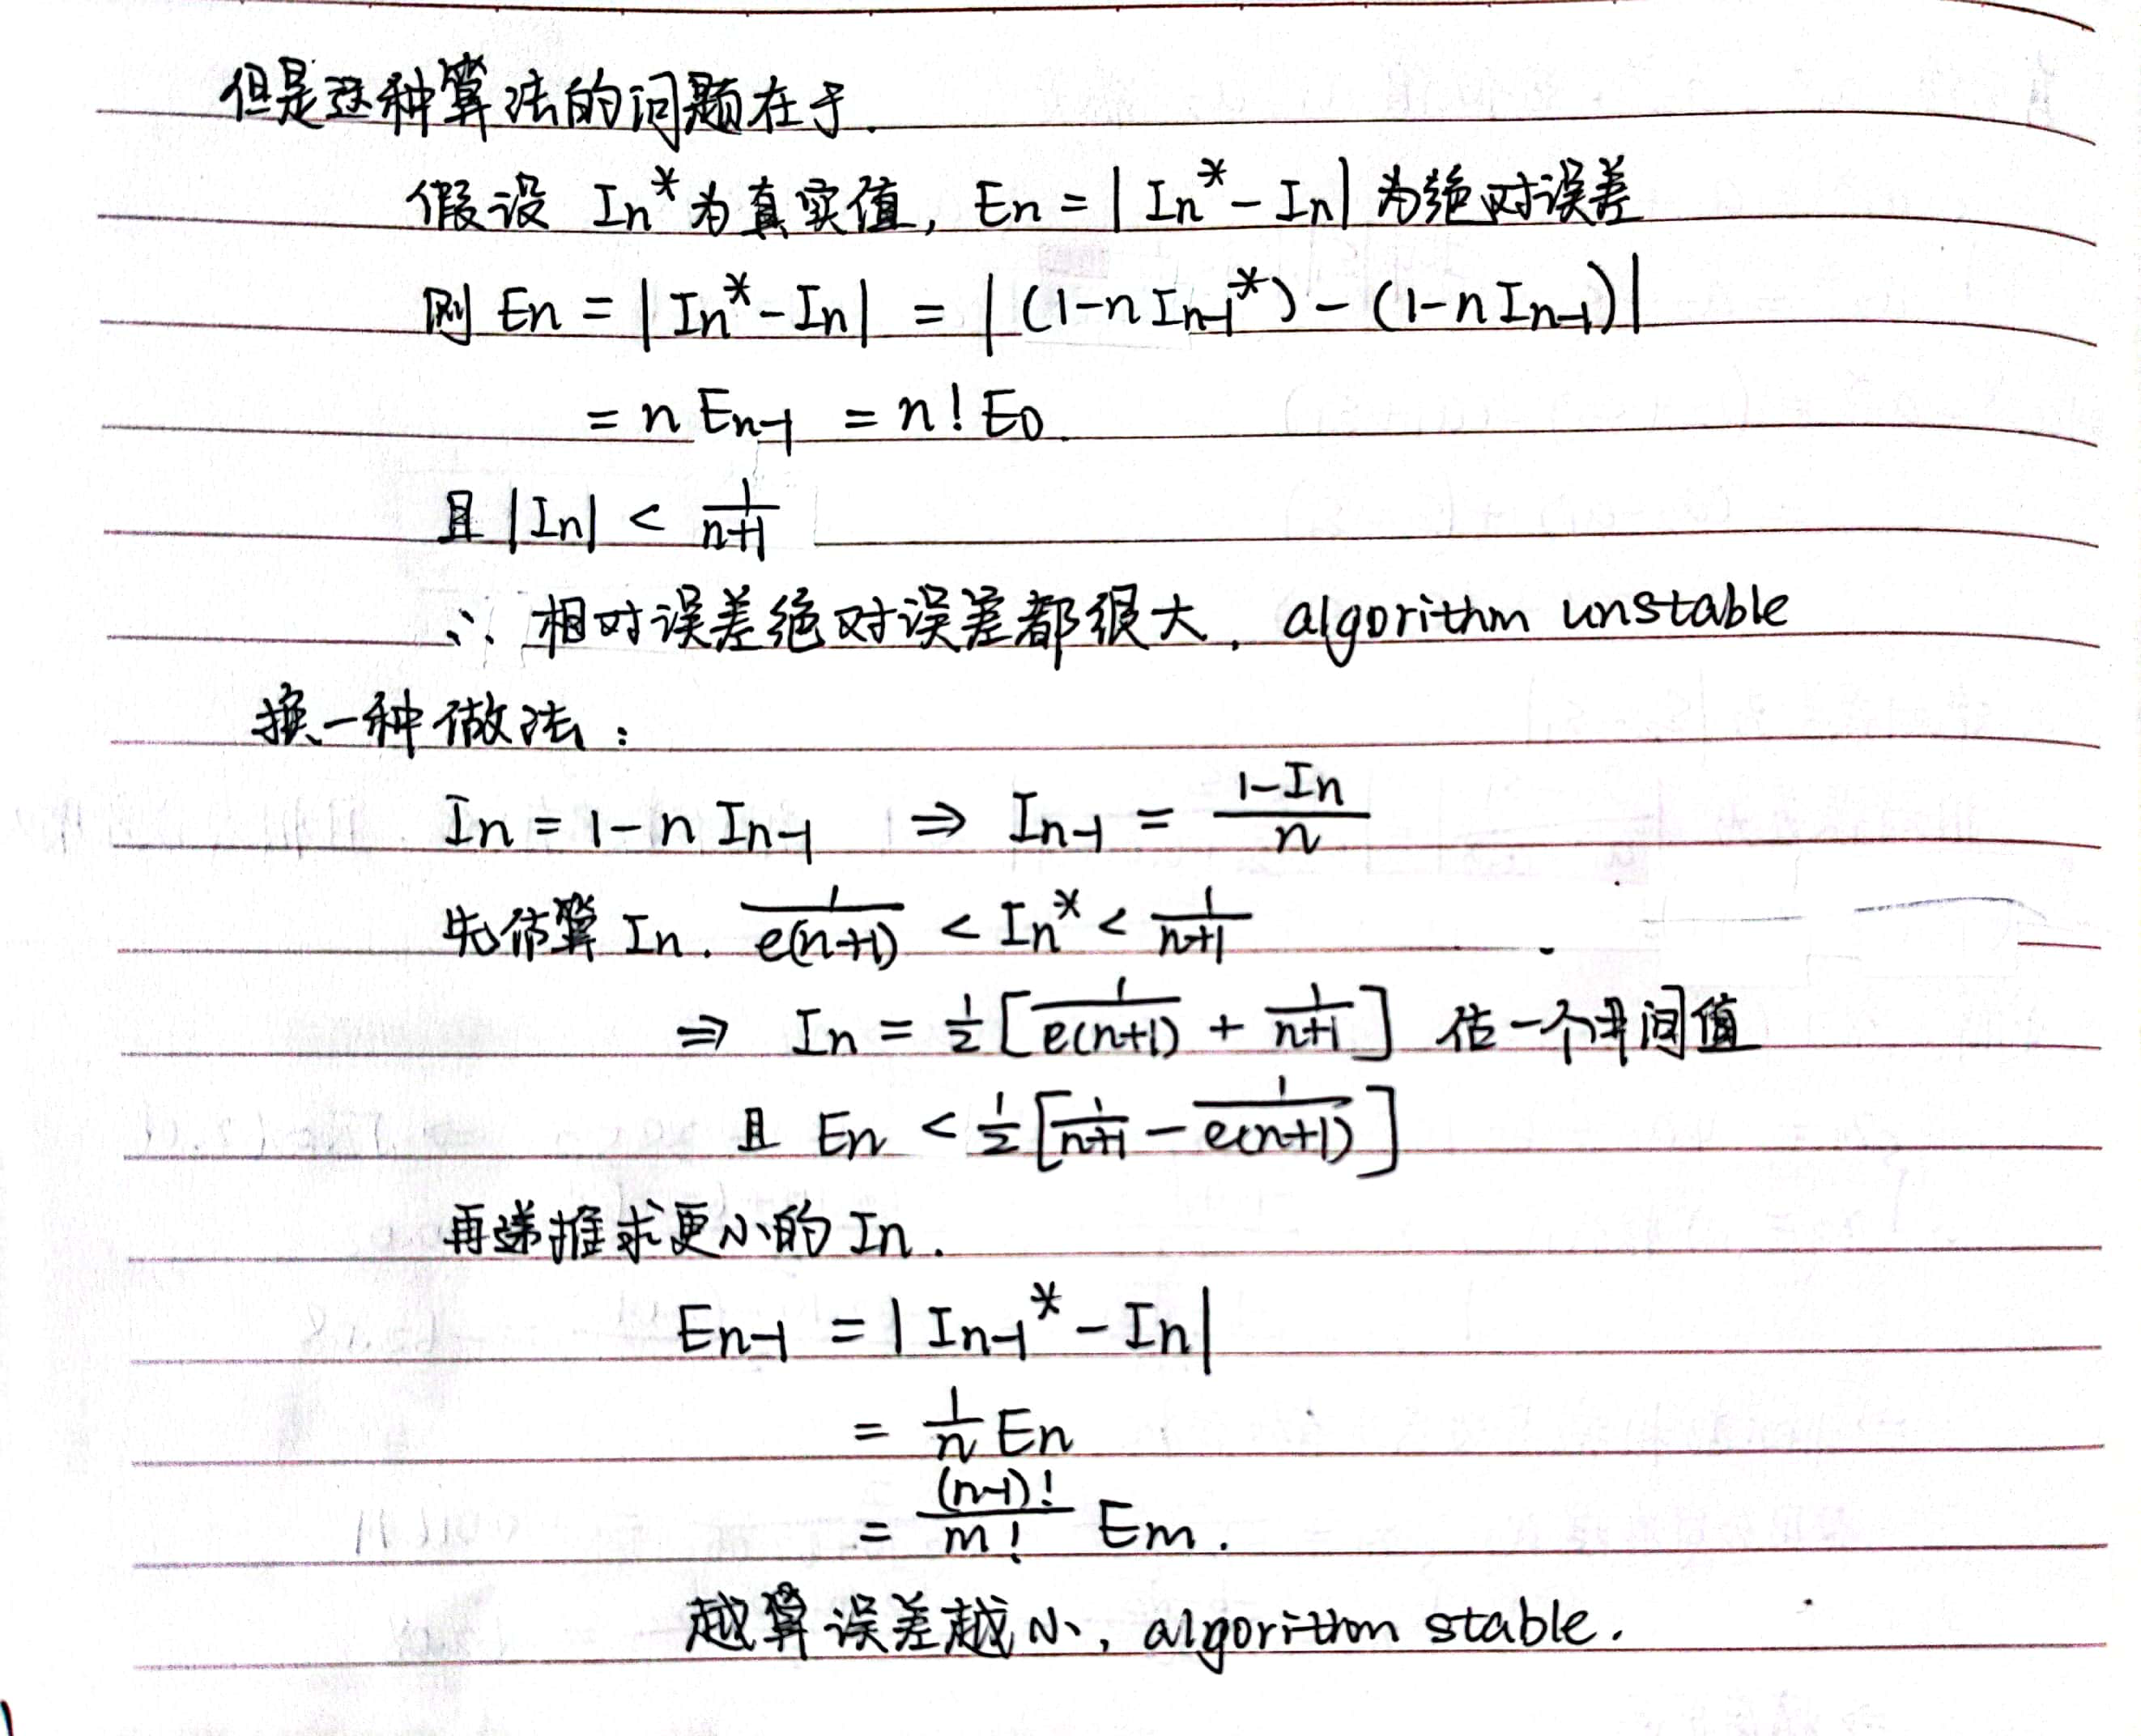 但是这种算法的问题在于.
假设 In* 为真实值, En = | In* - In | 为绝对误差
则 En = | In* - In | = | (1-n In-1*) - (1-n In-1) |
= n En-1 = n! E0.
且 |In| < 1/(n+1)
∴ 相对误差绝对误差都很大, algorithm unstable
换一种做法:
In = 1-n In-1 ⇒ In-1 = (1-In)/n
先估算 In. 1/(e(n+1)) < In* < 1/(n+1)
⇒ In = 1/2 [ 1/(e(n+1)) + 1/(n+1) ] 估一个中间值
且 En < 1/2 [ 1/(n+1) - 1/(e(n+1)) ]
再递推求更小的 In.
En-1 = | In-1* - In |
= 1/n En
= (n-1)!/m! Em.
越算误差越小, algorithm stable.